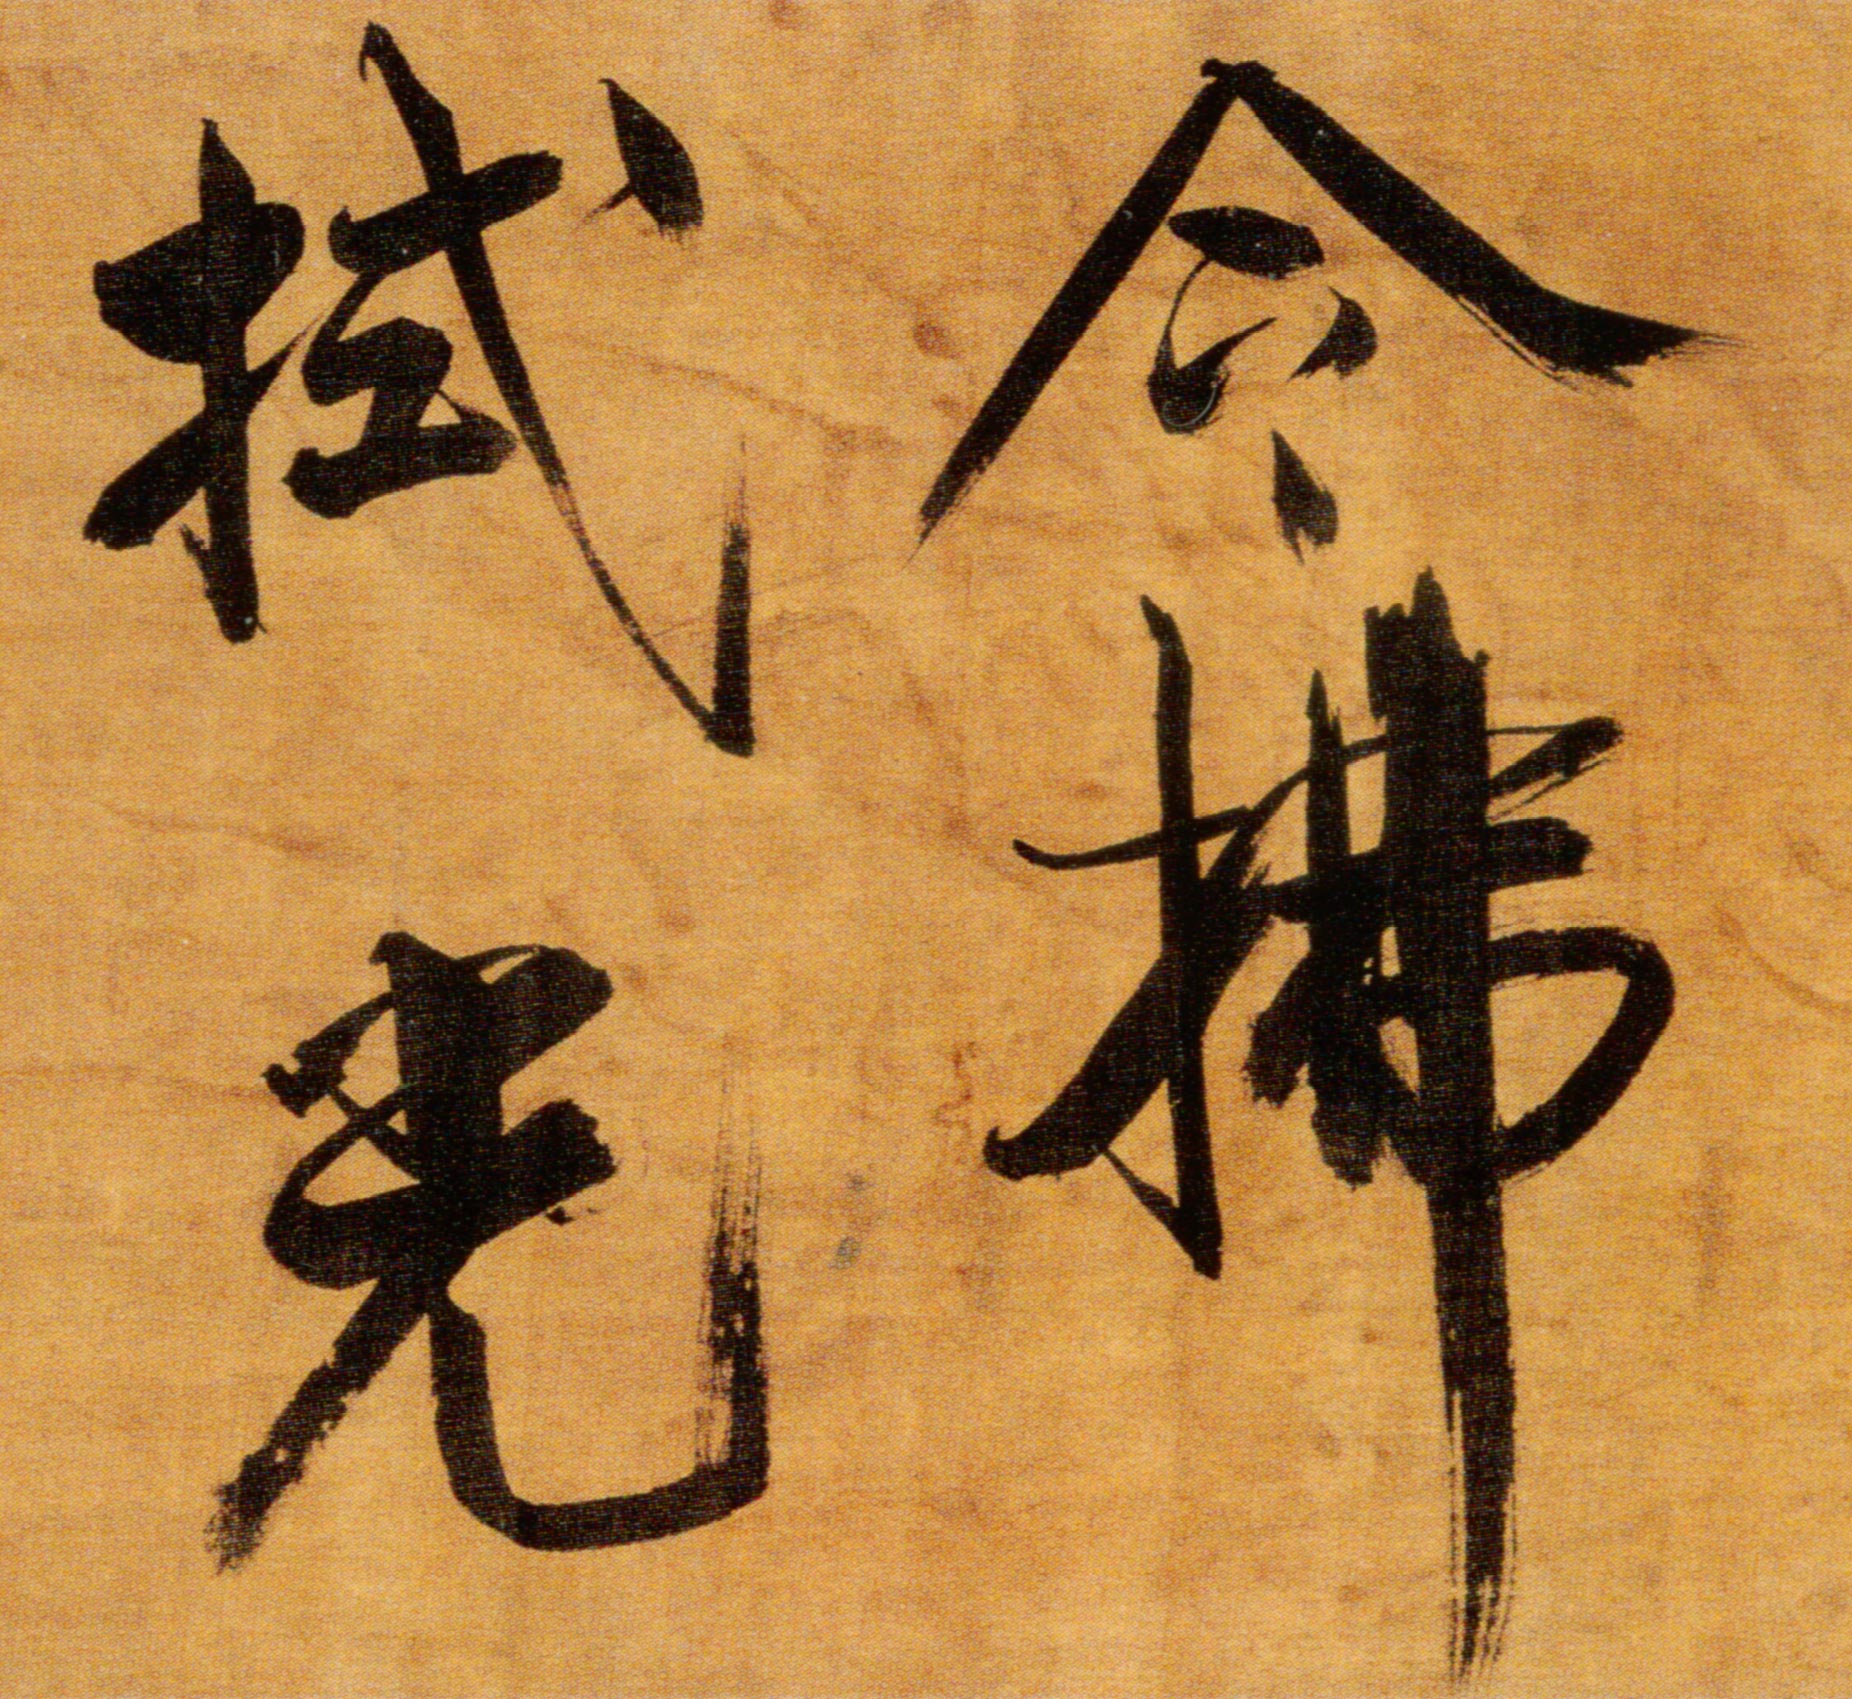 令拂
拭光